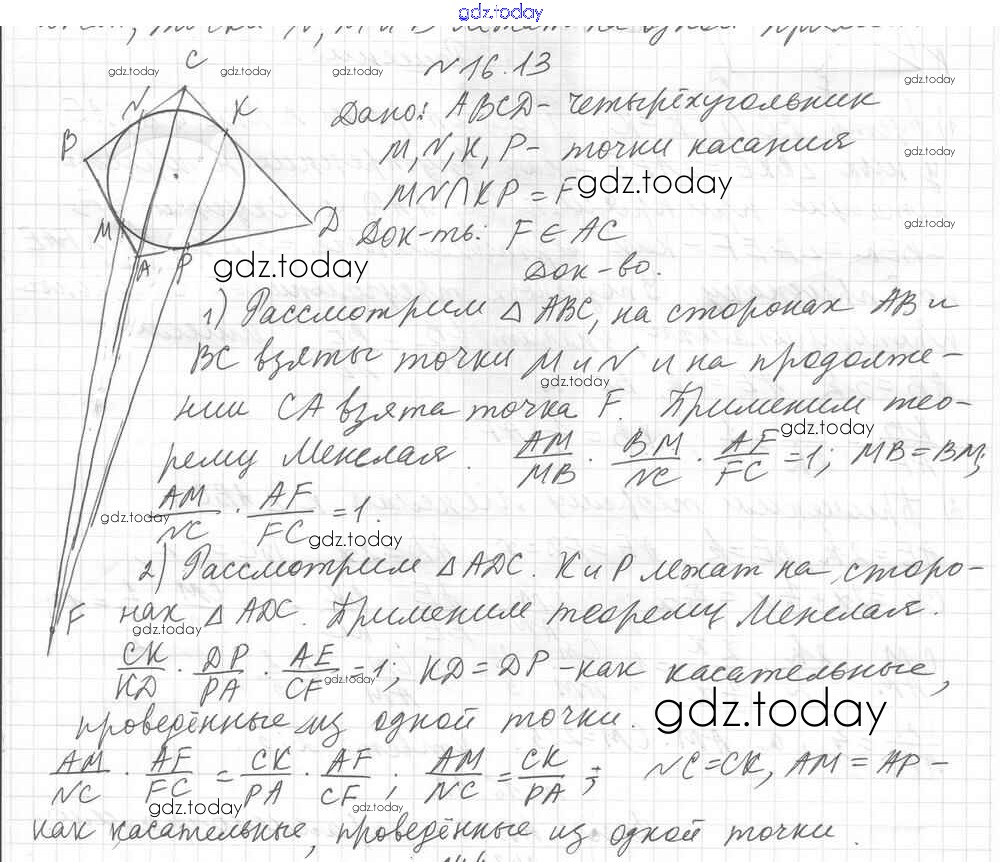 gdz.today
точки N, M и
№16.13
gdz.today gdz.today gdz.today gdz.today
C
N K
B
Дано: ABCD - четырёхугольник
gdz.today
M, N, K, P - точки касания
gdz.today
MN∩KP = F gdz.today
M D
A P
Док-ть: F ∈ AC
gdz.today
gdz.today
Док-во.
1) Рассмотрим △ ABC, на сторонах AB и
BC взяты точки M и N и на продолже-
gdz.today
нии CA взята точка F. Применим тео-
gdz.today
рему Менелая. AM/MB · BM/NC · AF/FC = 1; MB = BM;
AM/NC · AF/FC = 1.
gdz.today gdz.today
2) Рассмотрим △ ADC. K и P лежат на сторо-
F нах △ ADC. Применим теорему Менелая.
gdz.today
CK/KD · DP/PA · AF/CF = 1; KD = DP - как касательные,
gdz.today
проведённые из одной точки.
gdz.today
AM/NC · AF/FC = CK/PA · AF/CF; AM/NC = CK/PA; NC = CK, AM = AP -
gdz.today gdz.today
как касательные, проведённые из одной точки.